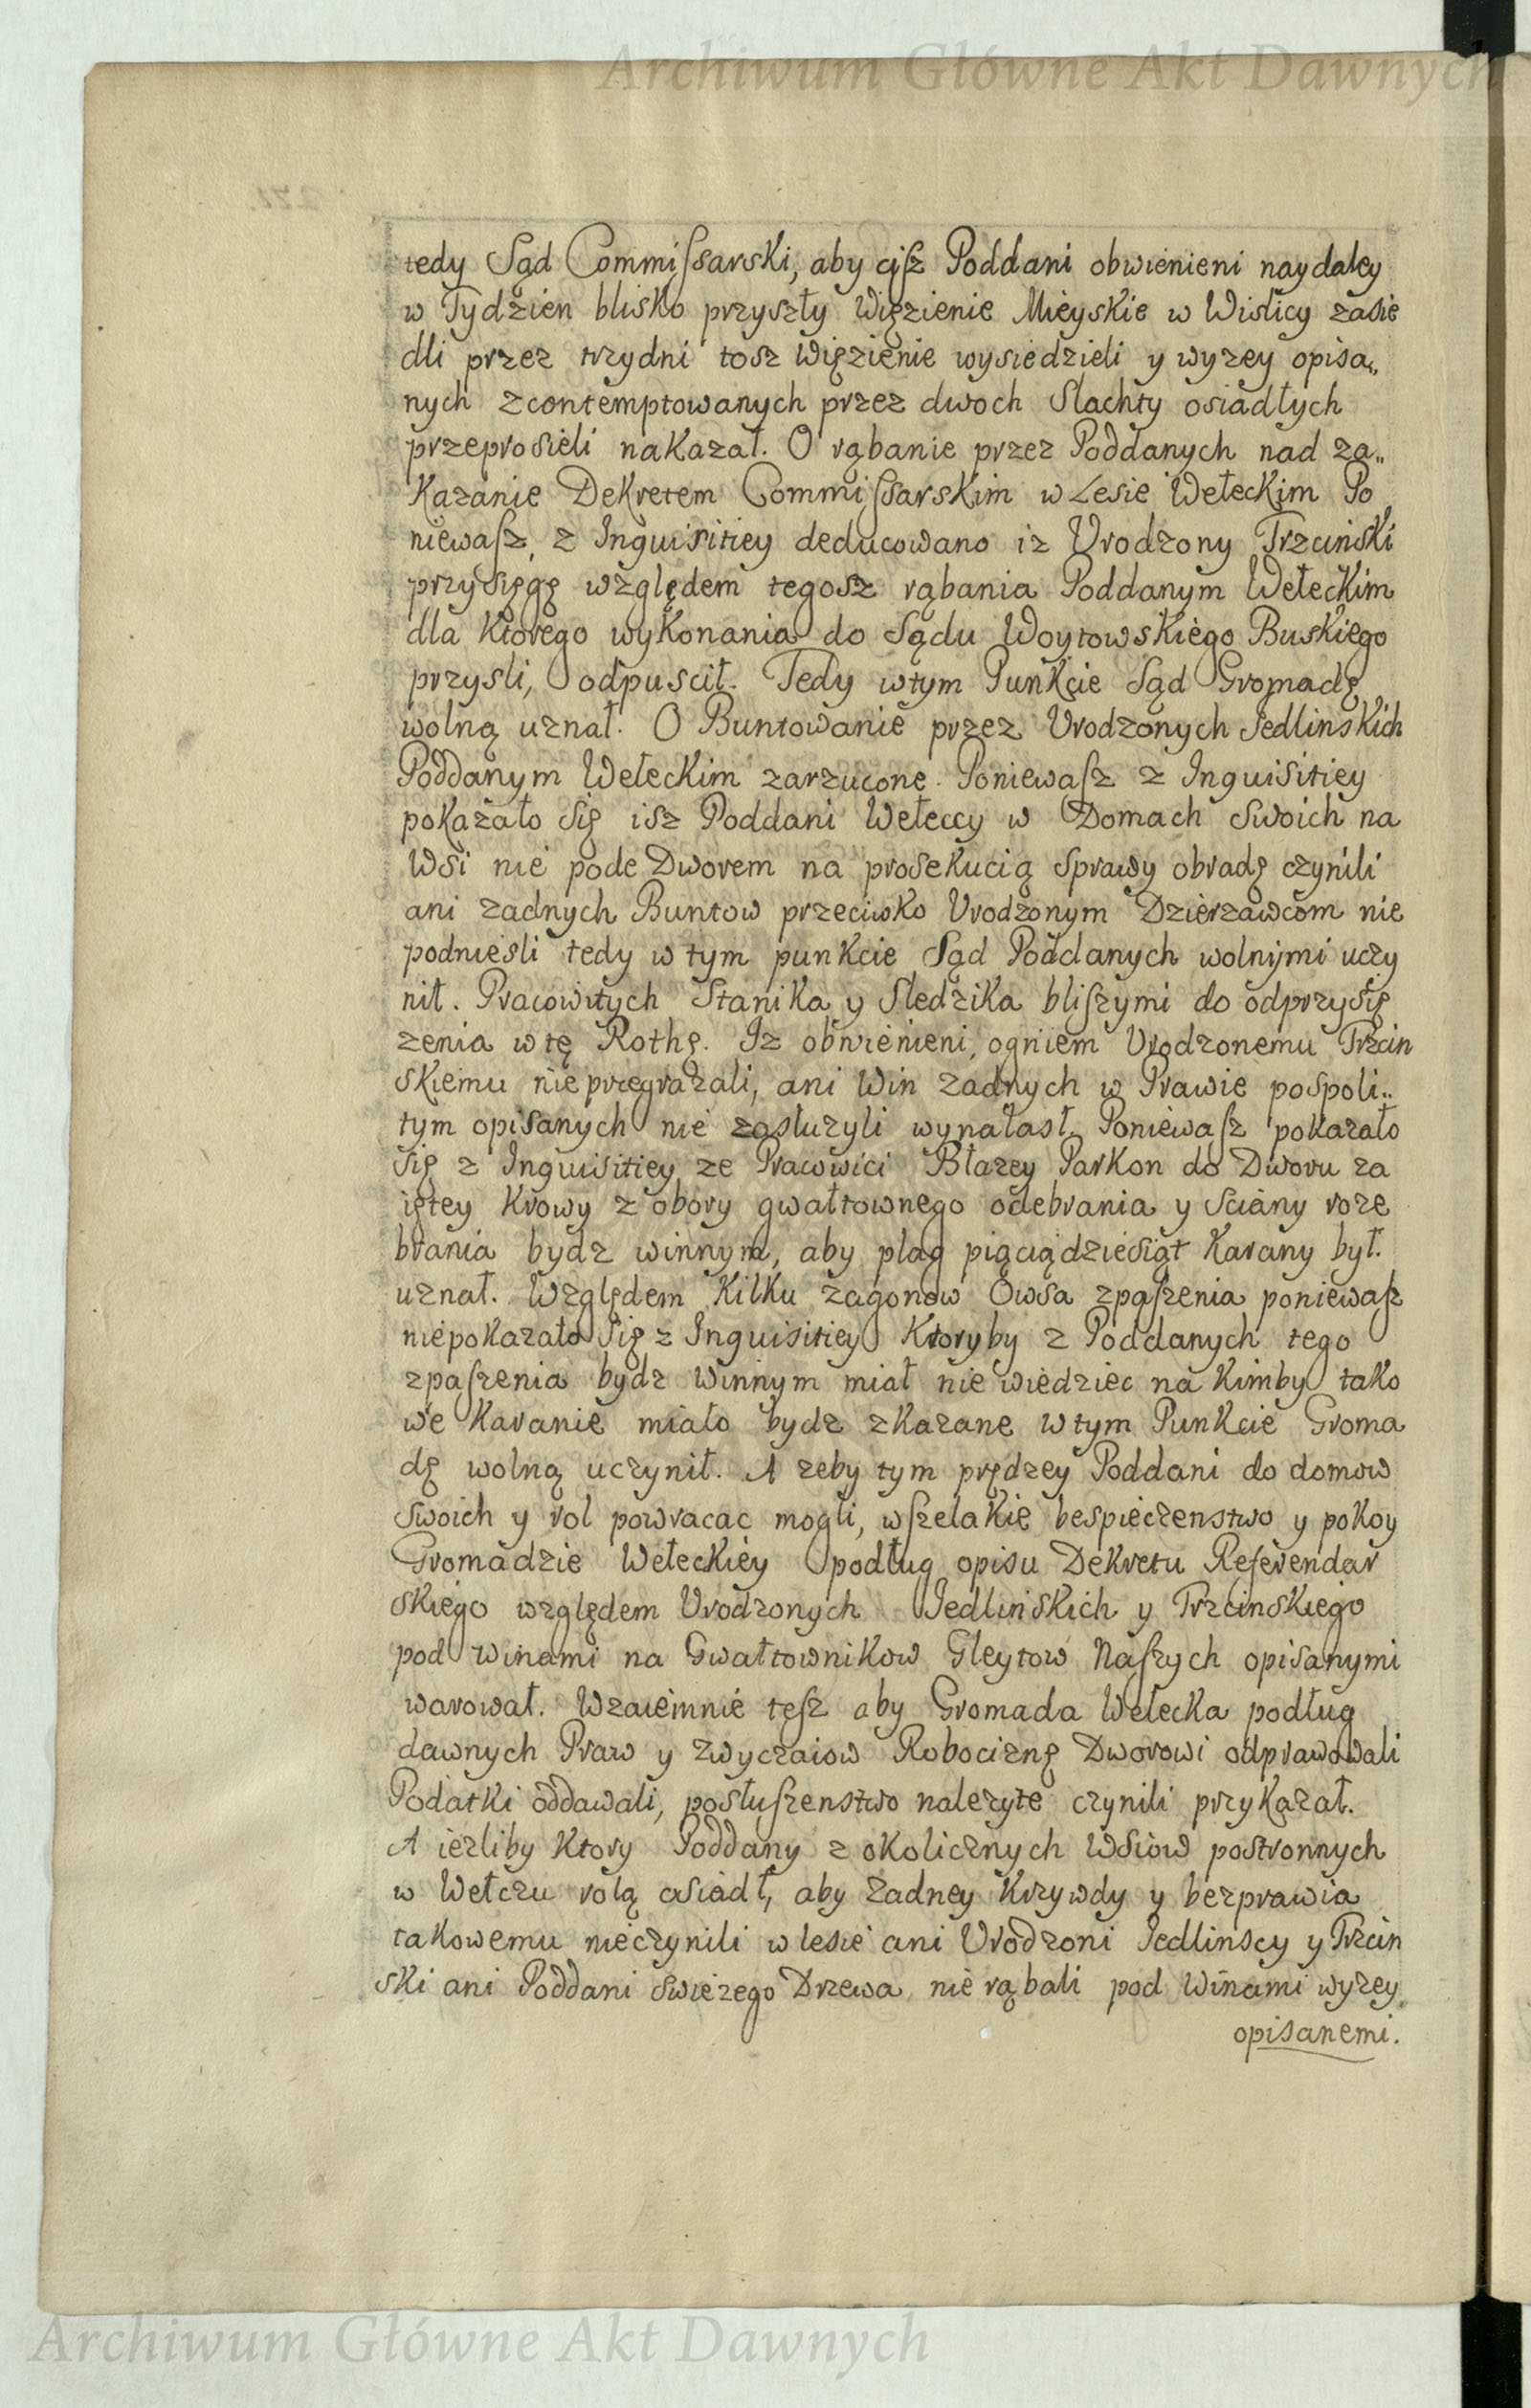 Archiwum Główne Akt Dawnych
tedy Sąd Commissarski, aby cisz Poddani obwienieni naydaley
w Tydzien blisko przyszły Więzienie Mieyskie w Wislicy zasie
dli przez trzydni tosz Więzienie wysiedzieli y wyzey opisa„
nych zcontemptowanych przez dwoch Slachty osiadłych
przeprosieli nakazał. O rąbanie przez Poddanych nad za„
kazanie Dekretem Commissarskim w Lesie Wełeckim Po
niewasz z Inquisitiey deducowano iz Urodzony Trzcinski
przysięgę względem tegosz rąbania Poddanym Wełeckim
dla ktorego wykonania do Sądu Woytowskiego Buskiego
przysli, odpuscił. Tedy wtym Punkcie Sąd Gromadę
wolną uznał. O Buntowanie przez Urodzonych Jedlinskich
Poddanym Wełeckim zarzucone. Poniewasz z Inquisitiey
pokazało się isz Poddani Wełeccy w Domach swoich na
Wsi nie pode Dworem na prosekucią sprawy obradę czynili
ani zadnych Buntow przeciwko Urodzonym Dzierzawcom nie
podniesli tedy w tym punkcie Sąd Poddanych wolnymi uczy
nił. Pracowitych Stanika y Sledzika bliszymi do odprzysię
zenia w tę Rothę. Iz obwienieni, ogniem Urodzonemu Trzcin
skiemu nie przegrazali, ani Win zadnych w Prawie pospoli„
tym opisanych nie zasłuzyli wynalasł. Poniewasz pokazało
się z Inquisitiey ze Pracowici Błazey Parkon do Dworu za
iętey Krowy z obory gwałtownego odebrania y sciany roze
brania bydz winnym, aby plag piąciądziesiąt karany był.
uznał. Względem kilku zagonow Owsa zpaszenia poniewasz
niepokazało się z Inquisitiey ktoryby z Poddanych tego
zpaszenia bydz winnym miał nie wiedziec na kimby tako
we karanie miało bydz zkazane wtym Punkcie Groma
dę wolną uczynił. A zeby tym prędzey Poddani do domow
swoich y rol powracac mogli, wszelakie bespieczenstwo y pokoy
Gromadzie Wełeckiey podług opisu Dekretu Referendar
skiego względem Urodzonych Jedlinskich y Trzcinskiego
pod winami na Gwałtownikow Gleytow Naszych opisanymi
warował. Wzaiemnie tesz aby Gromada Wełecka podług
dawnych Praw y zwyczaiow Robociznę Dworowi odprawowali
Podatki oddawali, posłuszenstwo nalezyte czynili przykazał.
A iezliby ktory Poddany z okolicznych Wsiow postronnych
w Wełczu rolą osiadł, aby zadney krzywdy y bezprawia
takowemu nieczynili w lesie ani Urodzoni Jedlinscy y Trzcin
ski ani Poddani swiezego Drzewa nie rąbali pod Winami wyzey
opisanemi.
Archiwum Główne Akt Dawnych